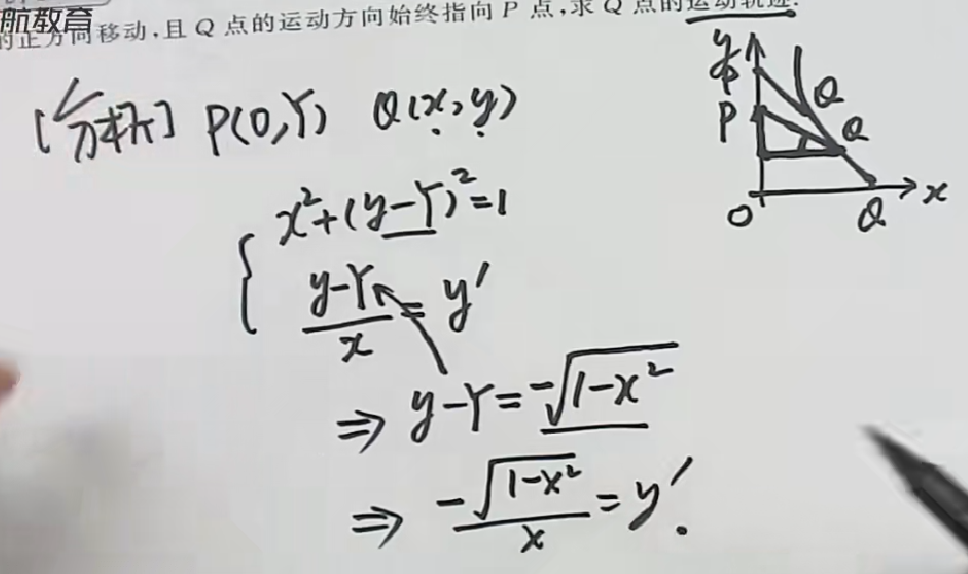 航教育
的正方向移动,且 Q 点的运动方向始终指向 P 点,求 Q 点的运动轨迹.
[分析] P(0,Y) Q(x,y)
x²+(y-Y)²=1
(y-Y)/x = y′
⇒ y-Y=-√(1-x²)
⇒ -√(1-x²)/x = y′.
y
P
P
Q
Q
O
Q
x